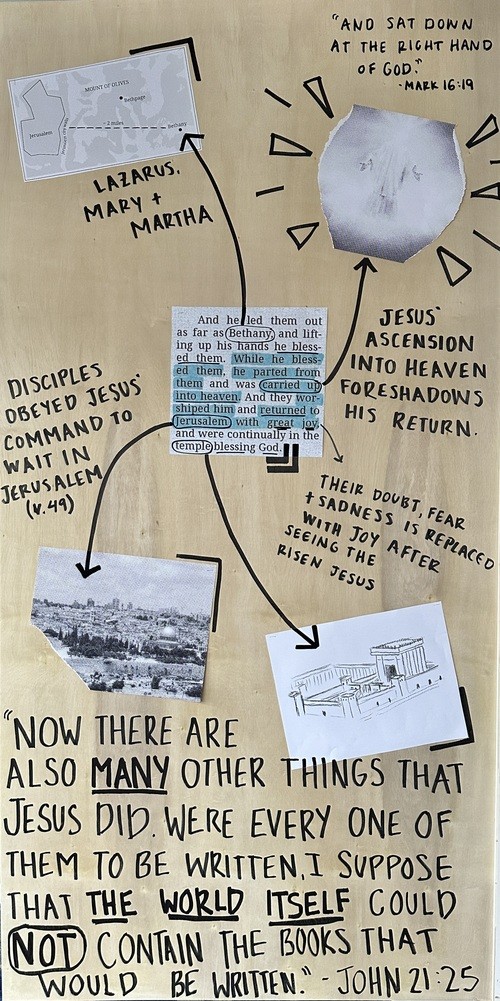 "AND SAT DOWN
AT THE RIGHT HAND
OF GOD."
-MARK 16:19
MOUNT OF OLIVES
Bethpage
Jerusalem
~2 miles
Bethany
LAZARUS,
MARY +
MARTHA
And he led them out
as far as Bethany, and lift-
ing up his hands he bless-
ed them. While he bless-
ed them, he parted from
them and was carried up
into heaven. And they wor-
shiped him and returned to
Jerusalem with great joy,
and were continually in the
temple blessing God.
JESUS'
ASCENSION
INTO HEAVEN
FORESHADOWS
HIS RETURN.
DISCIPLES
OBEYED JESUS'
COMMAND TO
WAIT IN
JERUSALEM
(v.49)
THEIR DOUBT, FEAR
+ SADNESS IS REPLACED
WITH JOY AFTER
SEEING THE
RISEN JESUS
"NOW THERE ARE
ALSO MANY OTHER THINGS THAT
JESUS DID. WERE EVERY ONE OF
THEM TO BE WRITTEN, I SUPPOSE
THAT THE WORLD ITSELF COULD
NOT CONTAIN THE BOOKS THAT
WOULD BE WRITTEN." - JOHN 21:25